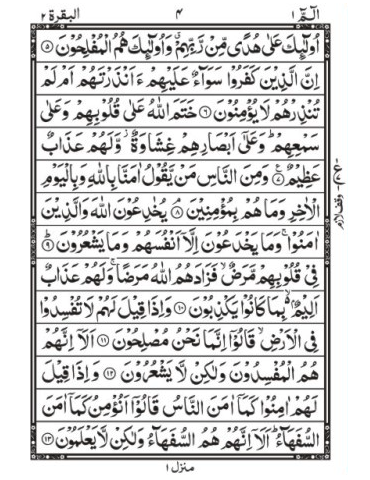 الٓمّٓ ١ ٤ البقرة ٢
اُولٰٓئِكَ عَلٰى هُدًى مِّنْ رَّبِّهِمْ ۙ وَاُولٰٓئِكَ هُمُ الْمُفْلِحُوْنَ ۝٥
اِنَّ الَّذِيْنَ كَفَرُوْا سَوَآءٌ عَلَيْهِمْ ءَاَنْذَرْتَهُمْ اَمْ لَمْ
تُنْذِرْهُمْ لَا يُؤْمِنُوْنَ ۝٦ خَتَمَ اللّٰهُ عَلٰى قُلُوْبِهِمْ وَعَلٰى
سَمْعِهِمْ ؕ وَعَلٰٓى اَبْصَارِهِمْ غِشَاوَةٌ ؗ وَّلَهُمْ عَذَابٌ
عَظِيْمٌ ۝٧ وَمِنَ النَّاسِ مَنْ يَّقُوْلُ اٰمَنَّا بِاللّٰهِ وَبِالْيَوْمِ
الْاٰخِرِ وَمَا هُمْ بِمُؤْمِنِيْنَ ۝٨ يُخٰدِعُوْنَ اللّٰهَ وَالَّذِيْنَ
اٰمَنُوْا ۚ وَمَا يَخْدَعُوْنَ اِلَّآ اَنْفُسَهُمْ وَمَا يَشْعُرُوْنَ ۝٩
فِيْ قُلُوْبِهِمْ مَّرَضٌ ۙ فَزَادَهُمُ اللّٰهُ مَرَضًا ۚ وَلَهُمْ عَذَابٌ
اَلِيْمٌۢ ۙ بِمَا كَانُوْا يَكْذِبُوْنَ ۝١٠ وَاِذَا قِيْلَ لَهُمْ لَا تُفْسِدُوْا
فِي الْاَرْضِ ۙ قَالُوْٓا اِنَّمَا نَحْنُ مُصْلِحُوْنَ ۝١١ اَلَآ اِنَّهُمْ
هُمُ الْمُفْسِدُوْنَ وَلٰكِنْ لَّا يَشْعُرُوْنَ ۝١٢ وَاِذَا قِيْلَ
لَهُمْ اٰمِنُوْا كَمَآ اٰمَنَ النَّاسُ قَالُوْٓا اَنُؤْمِنُ كَمَآ اٰمَنَ
السُّفَهَآءُ ؕ اَلَآ اِنَّهُمْ هُمُ السُّفَهَآءُ وَلٰكِنْ لَّا يَعْلَمُوْنَ ۝١٣
منزل ١